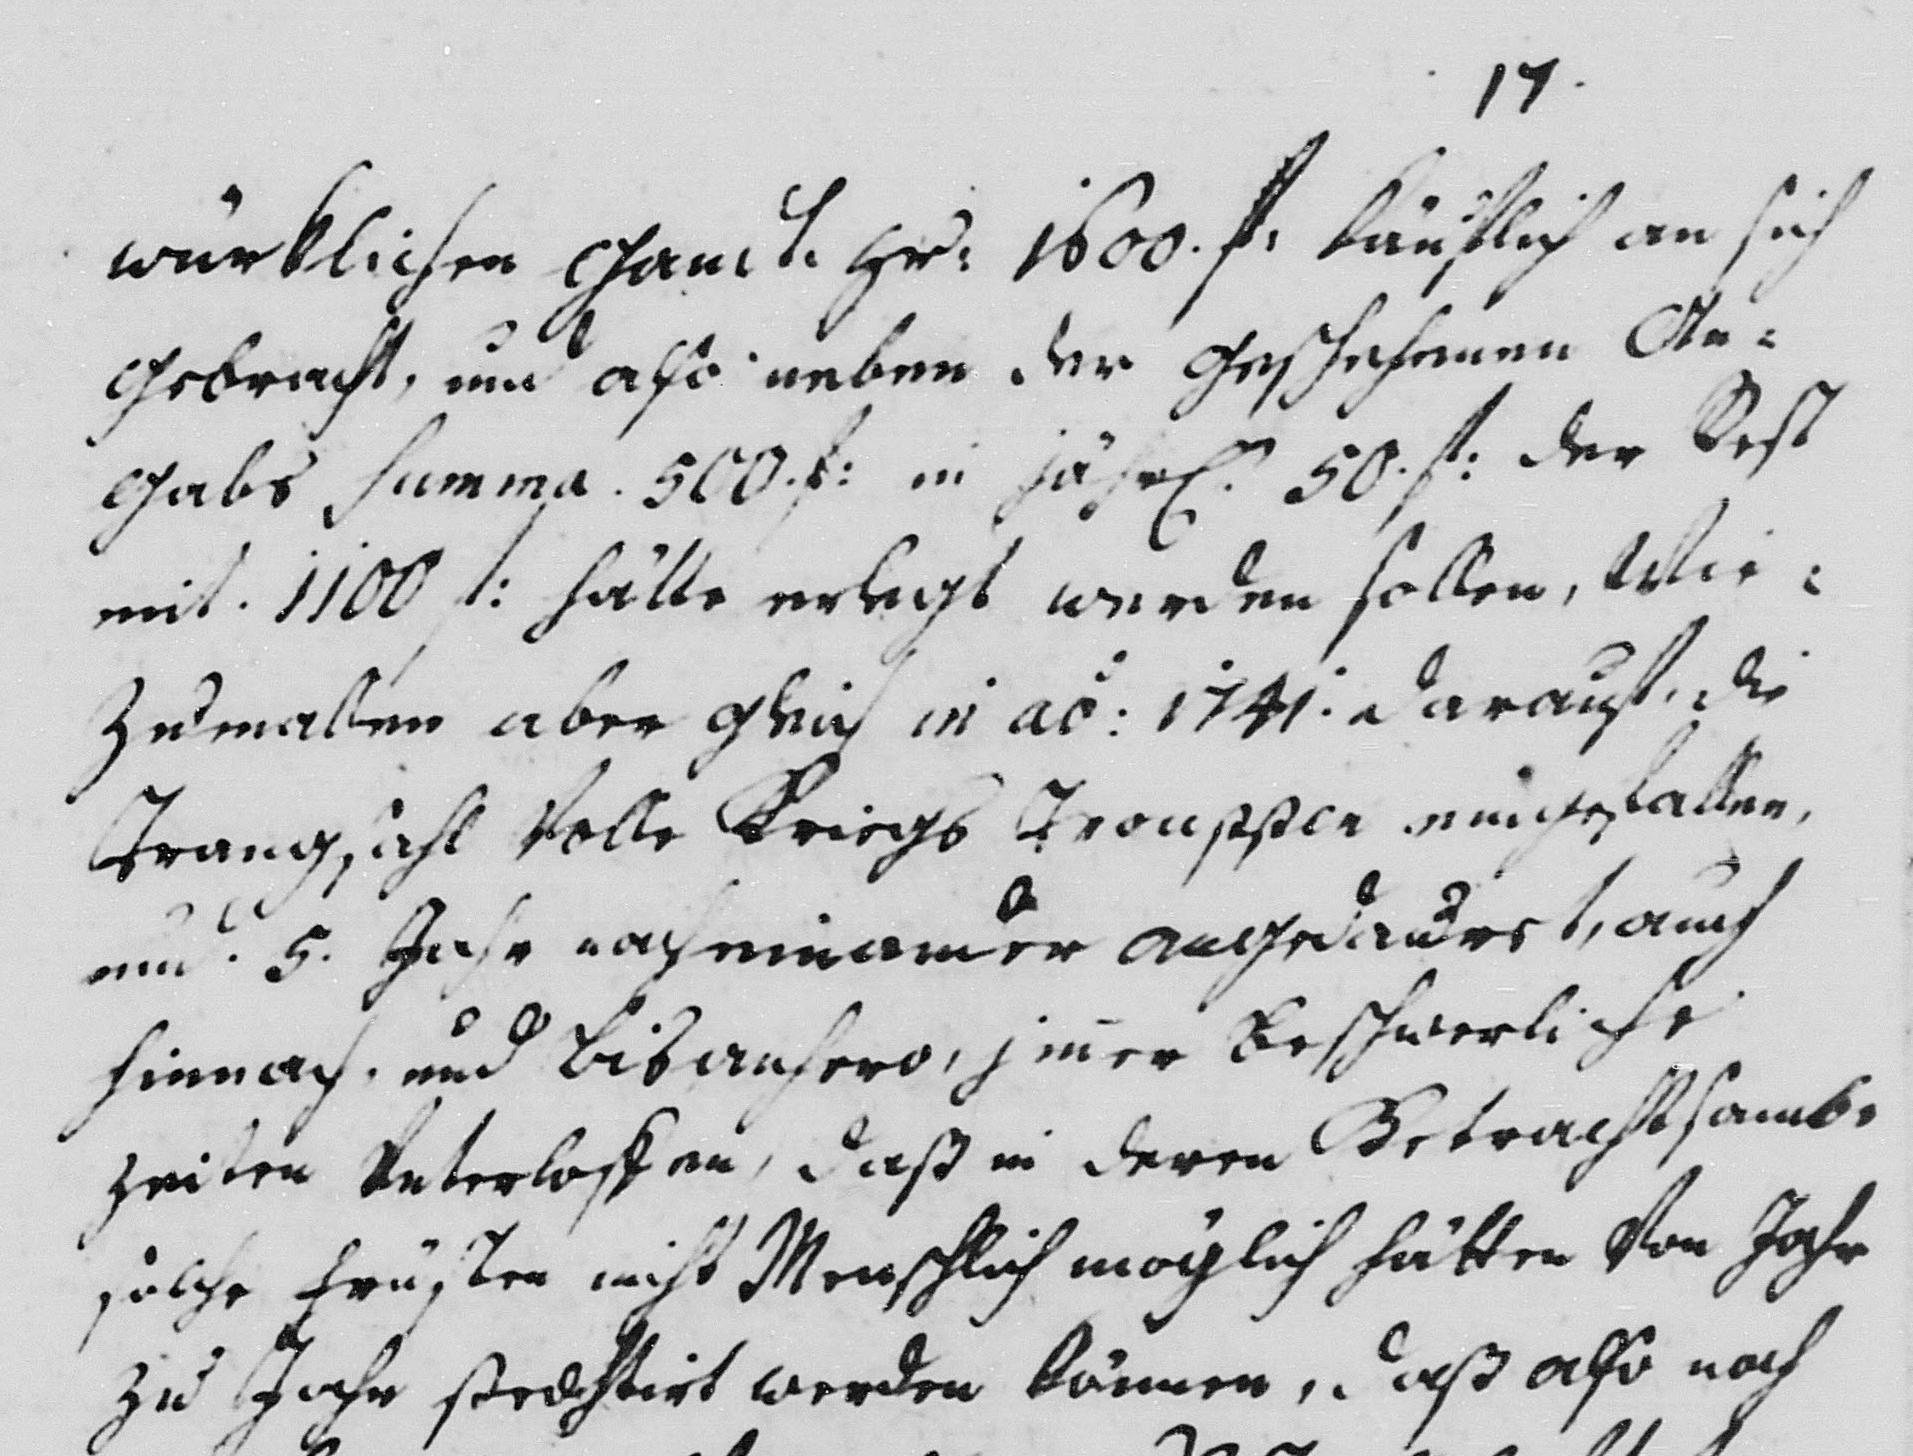 17.
würklichen Gandt. per: 1600. f: käuflich an sich
gebracht, und also neben der geschehenen An-
gabs Summa. 500. f: in jährl. 50. f: der Rest
mit. 1100 f: hätte erlegt werden sollen, Wie-
zumallen aber gleich in ao: 1741. darauf. die
Trangsahl volle Kriegs Trouppen eingefallen,
und. 5. Jahr nacheinander angedauret, auch
hinnach. und bishanhero, jmer beschwerliche
zeiten Unterloffen, daß in deren Betrachtsambe
solche Fristen nicht Menschlich möglich hätten von Jahr
zu Jahr præstirt werden können, daß also noch